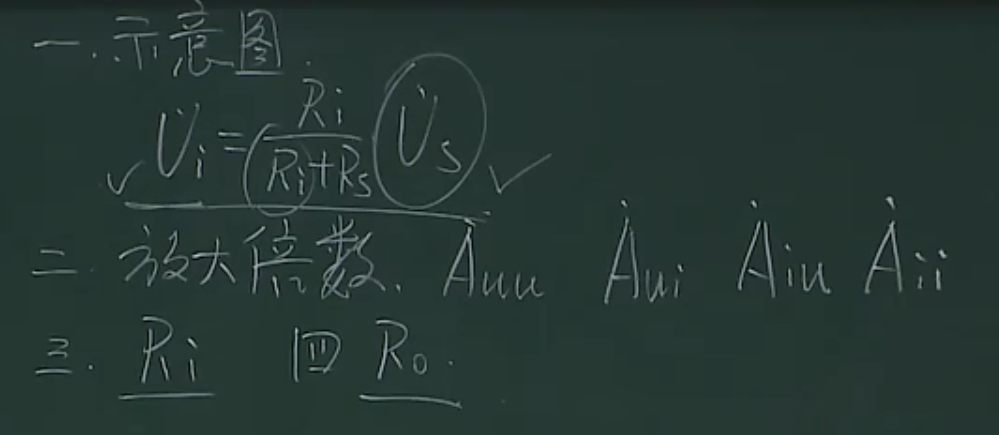 一. 示意图.
U̇i = Ri/(Ri+Rs) U̇s
二. 放大倍数. Ȧuu Ȧui Ȧiu Ȧii
三. Ri 四 Ro.